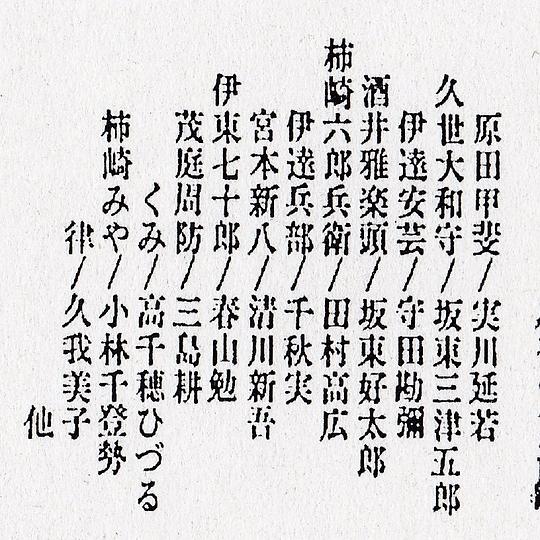 原田甲斐/実川延若
久世大和守/坂東三津五郎
伊達安芸/守田勘彌
酒井雅楽頭/坂東好太郎
柿崎六郎兵衛/田村高広
伊達兵部/千秋実
宮本新八/清川新吾
伊東七十郎/春山勉
茂庭周防/三島耕
くみ/高千穂ひづる
柿崎みや/小林千登勢
律/久我美子
他